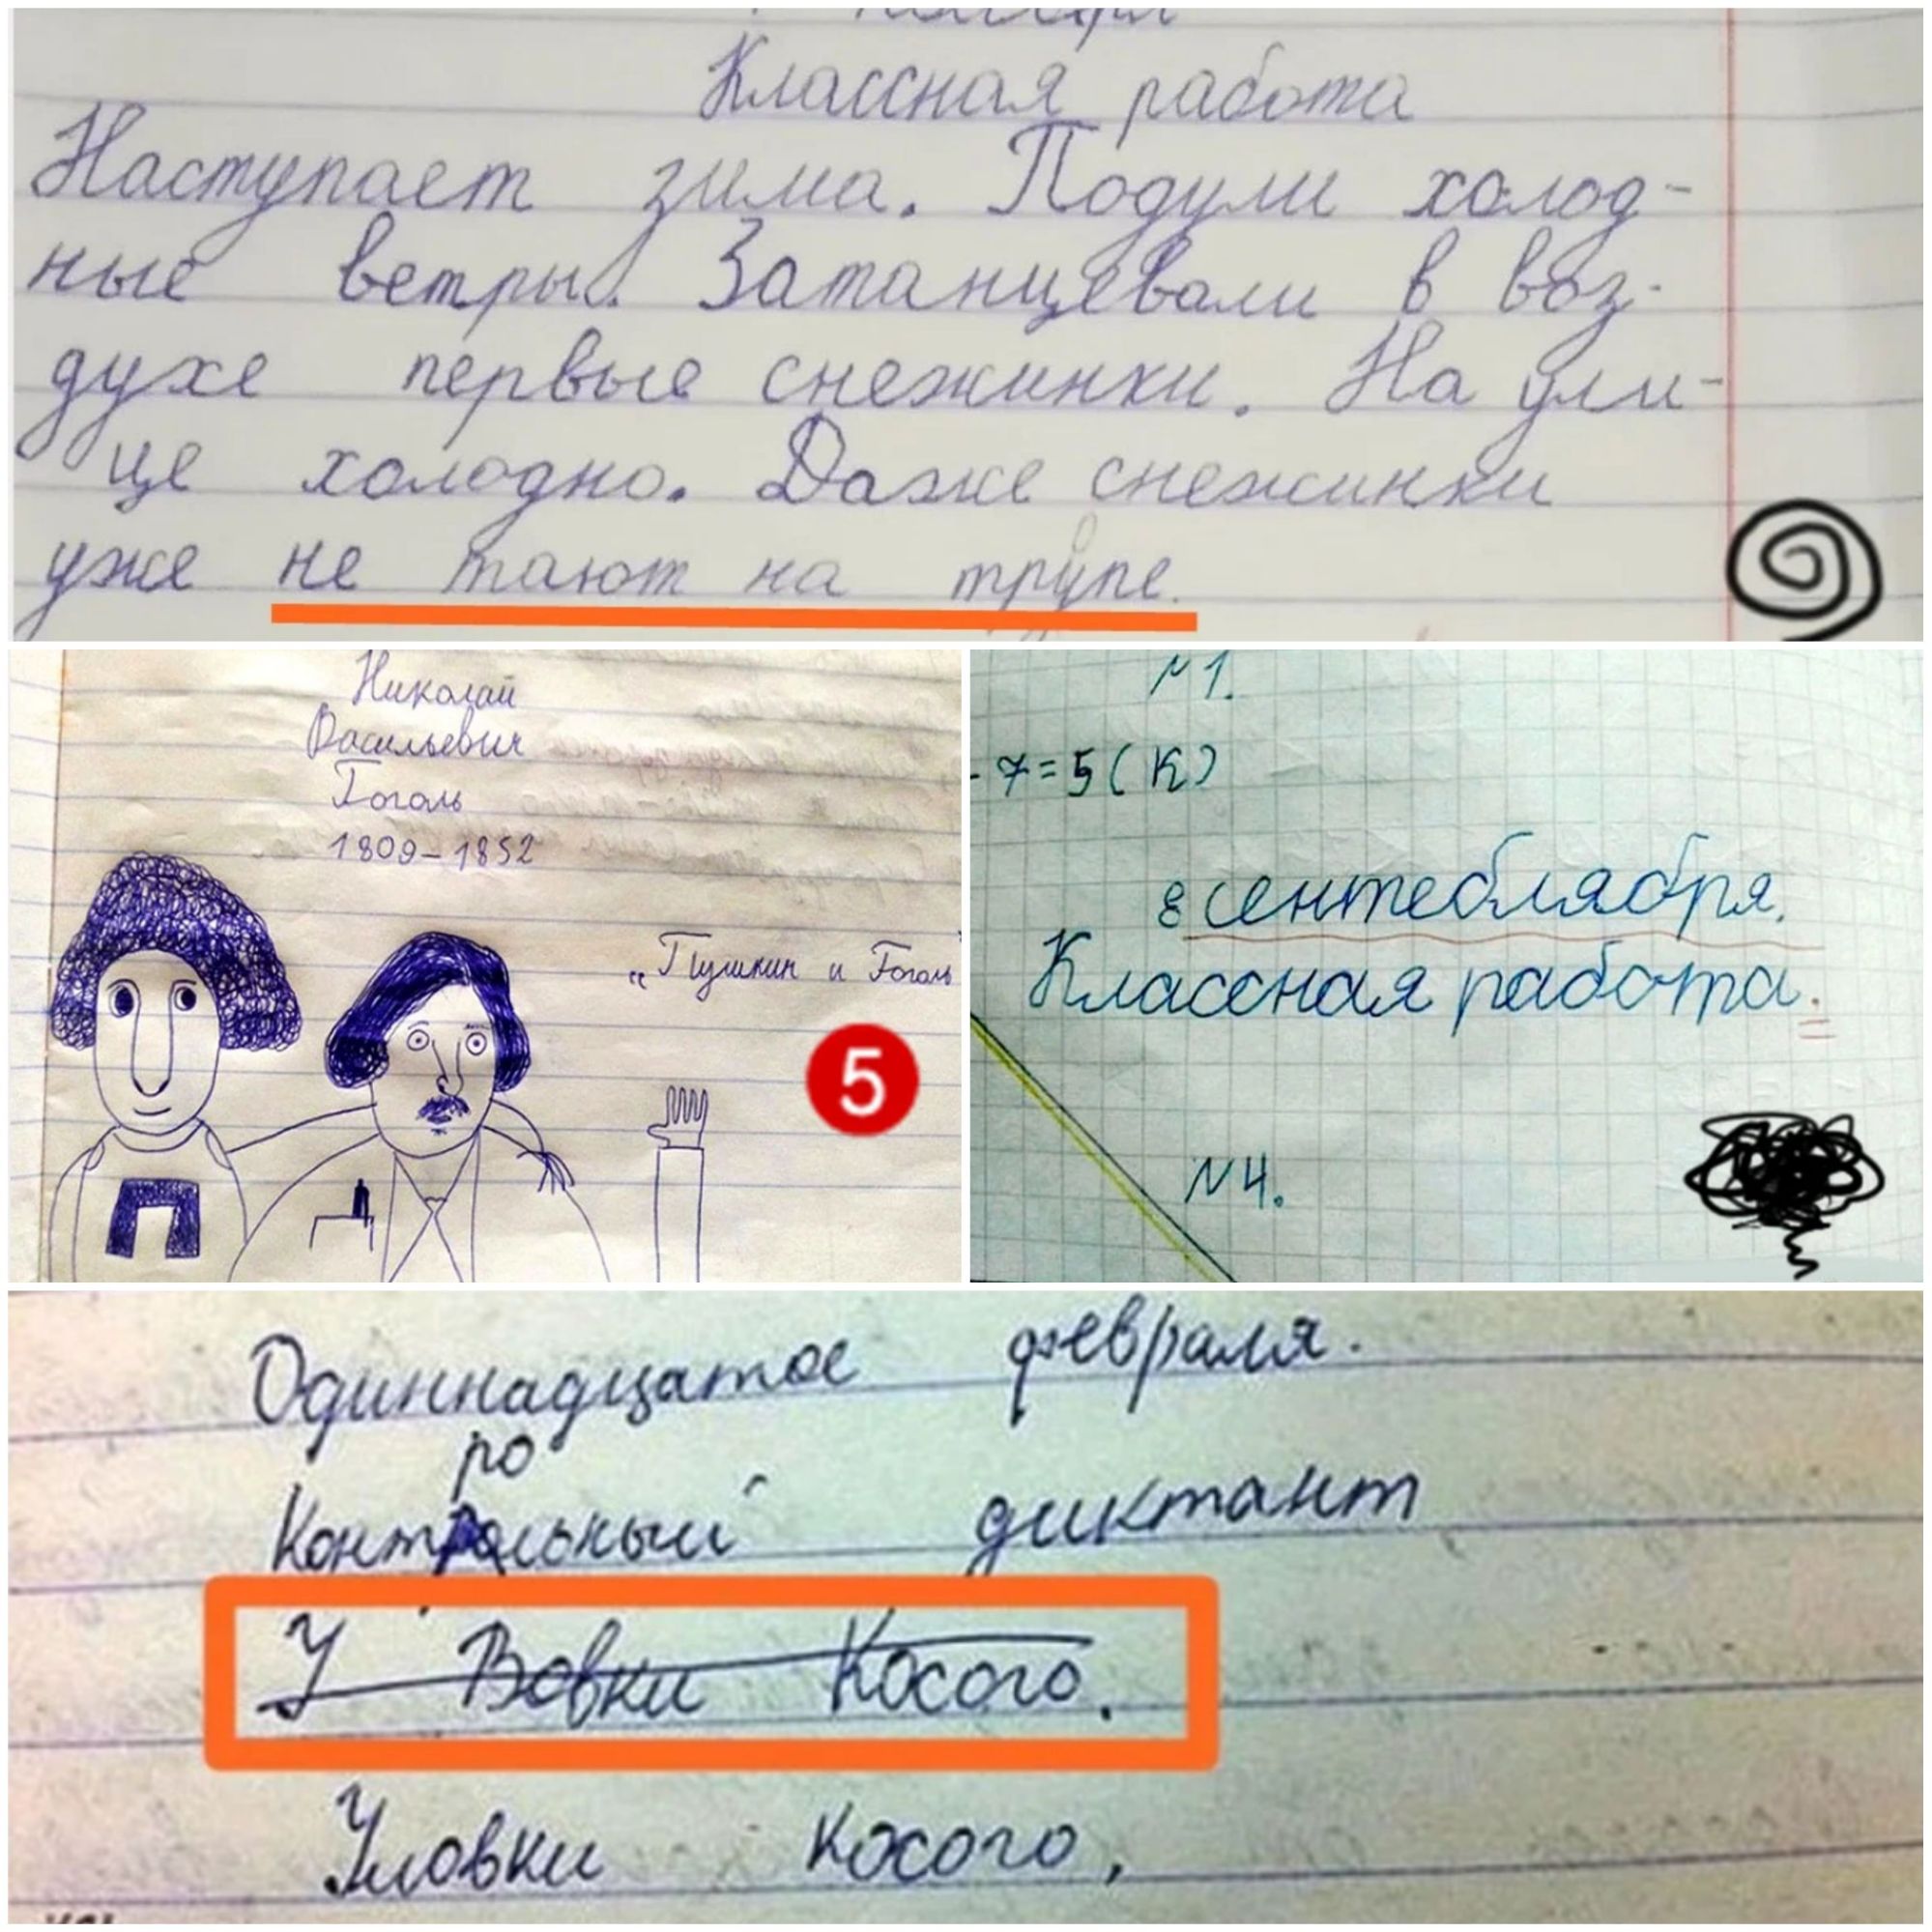 Классная работа
Наступает зима. Подули холод-
ные ветры. Затанцевали в воз-
духе первые снежинки. На ули-
це холодно. Даже снежинки
уже не тают на трупе.
Николай
Васильевич
Гоголь
1809-1852
"Пушкин и Гоголь"
П
5
N1.
-7=5(К)
8 сентеблября.
Классная работа.
N4.
Одиннадцатое февраля.
ро
Контрольный диктант
У Вовки Косого.
Уловки косого,